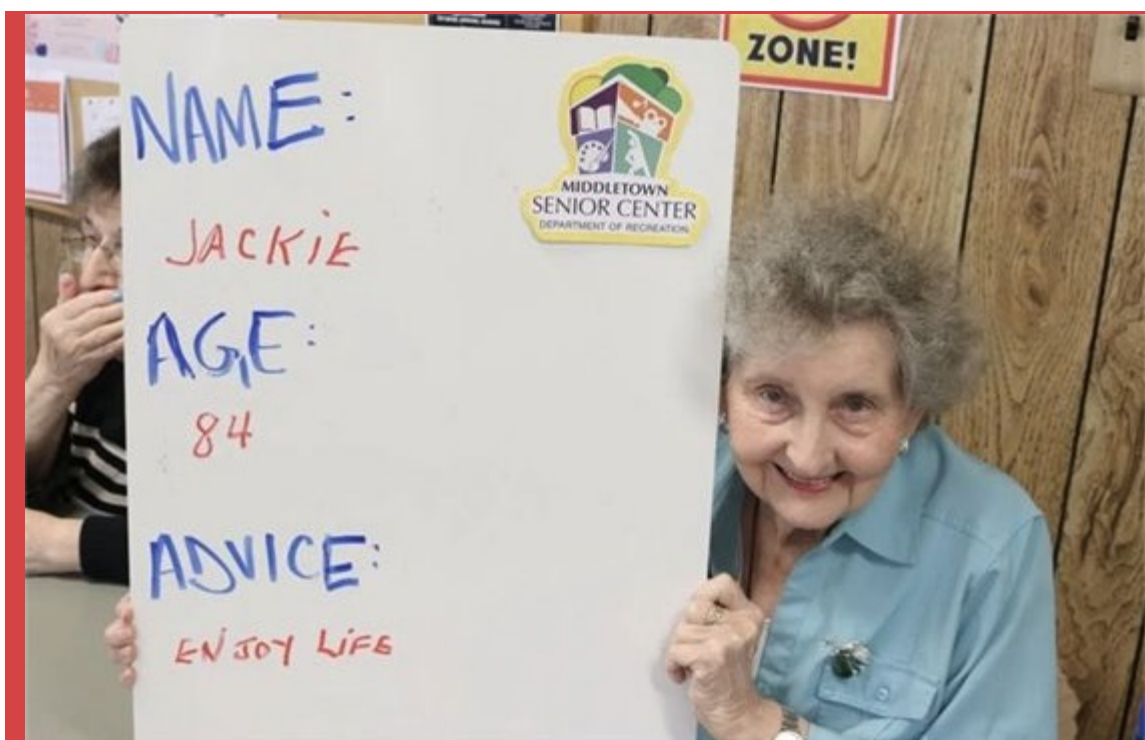 ZONE!
NAME:
JACKIE
AGE:
84
ADVICE:
ENJOY LIFE
MIDDLETOWN
SENIOR CENTER
DEPARTMENT OF RECREATION